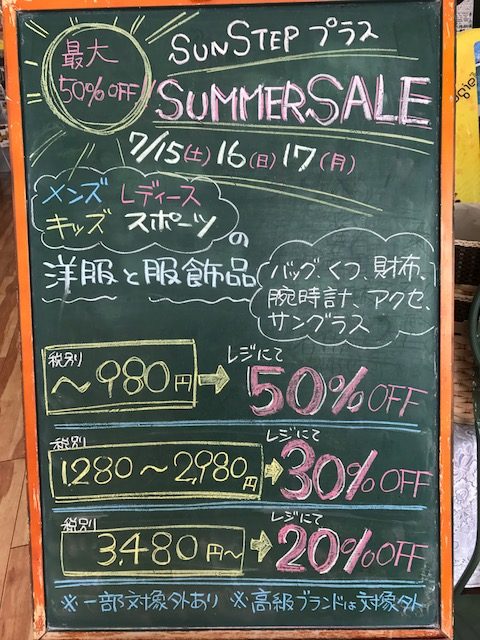 最大
50%OFF
SUNSTEP プラス
SUMMER SALE
7/15(土) 16(日) 17(月)
メンズ レディース
キッズ スポーツ の
洋服と服飾品
バッグ、くつ、財布、
腕時計、アクセ、
サングラス
税別 レジにて
～980円 → 50%OFF
税別 レジにて
1280～2,980円 → 30%OFF
税別 レジにて
3,480円～ → 20%OFF
※一部対象外あり ※高級ブランドは対象外